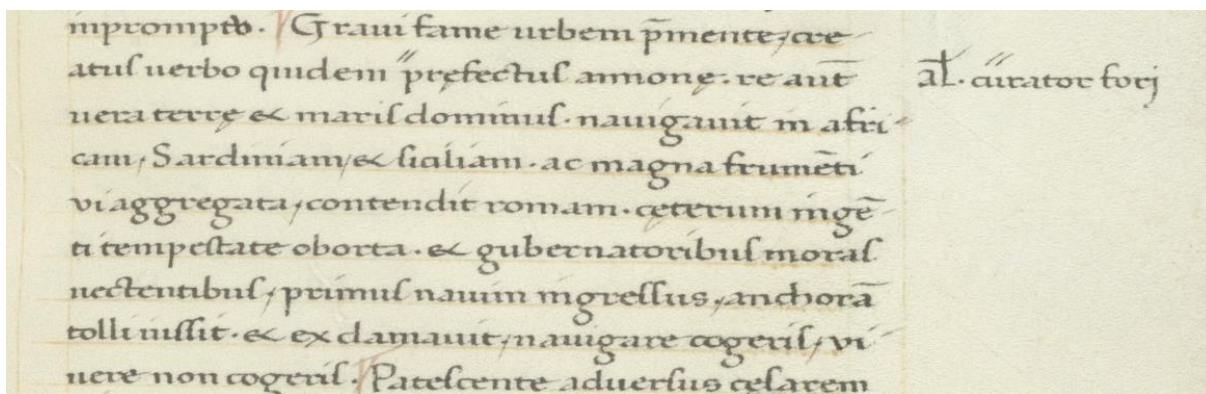 inpromptu. Graui fame urbem p̄mente, cre-
atus uerbo quidem "pręfectus annonę. re aut̄
uera terrę & maris dominus. nauigauit in afri-
cam, Sardiniam, & siciliam. ac magna frumēti
vi aggregata, contendit romam. cęterum ingē-
ti tempestate oborta. & gubernatoribus moras
nectentibus, primus nauim ingressus, anchorā
tolli iussit. & exclamauit, nauigare cogeris, vi-
uere non cogeris. Patescente adversus cęsarem
al. "curator forj